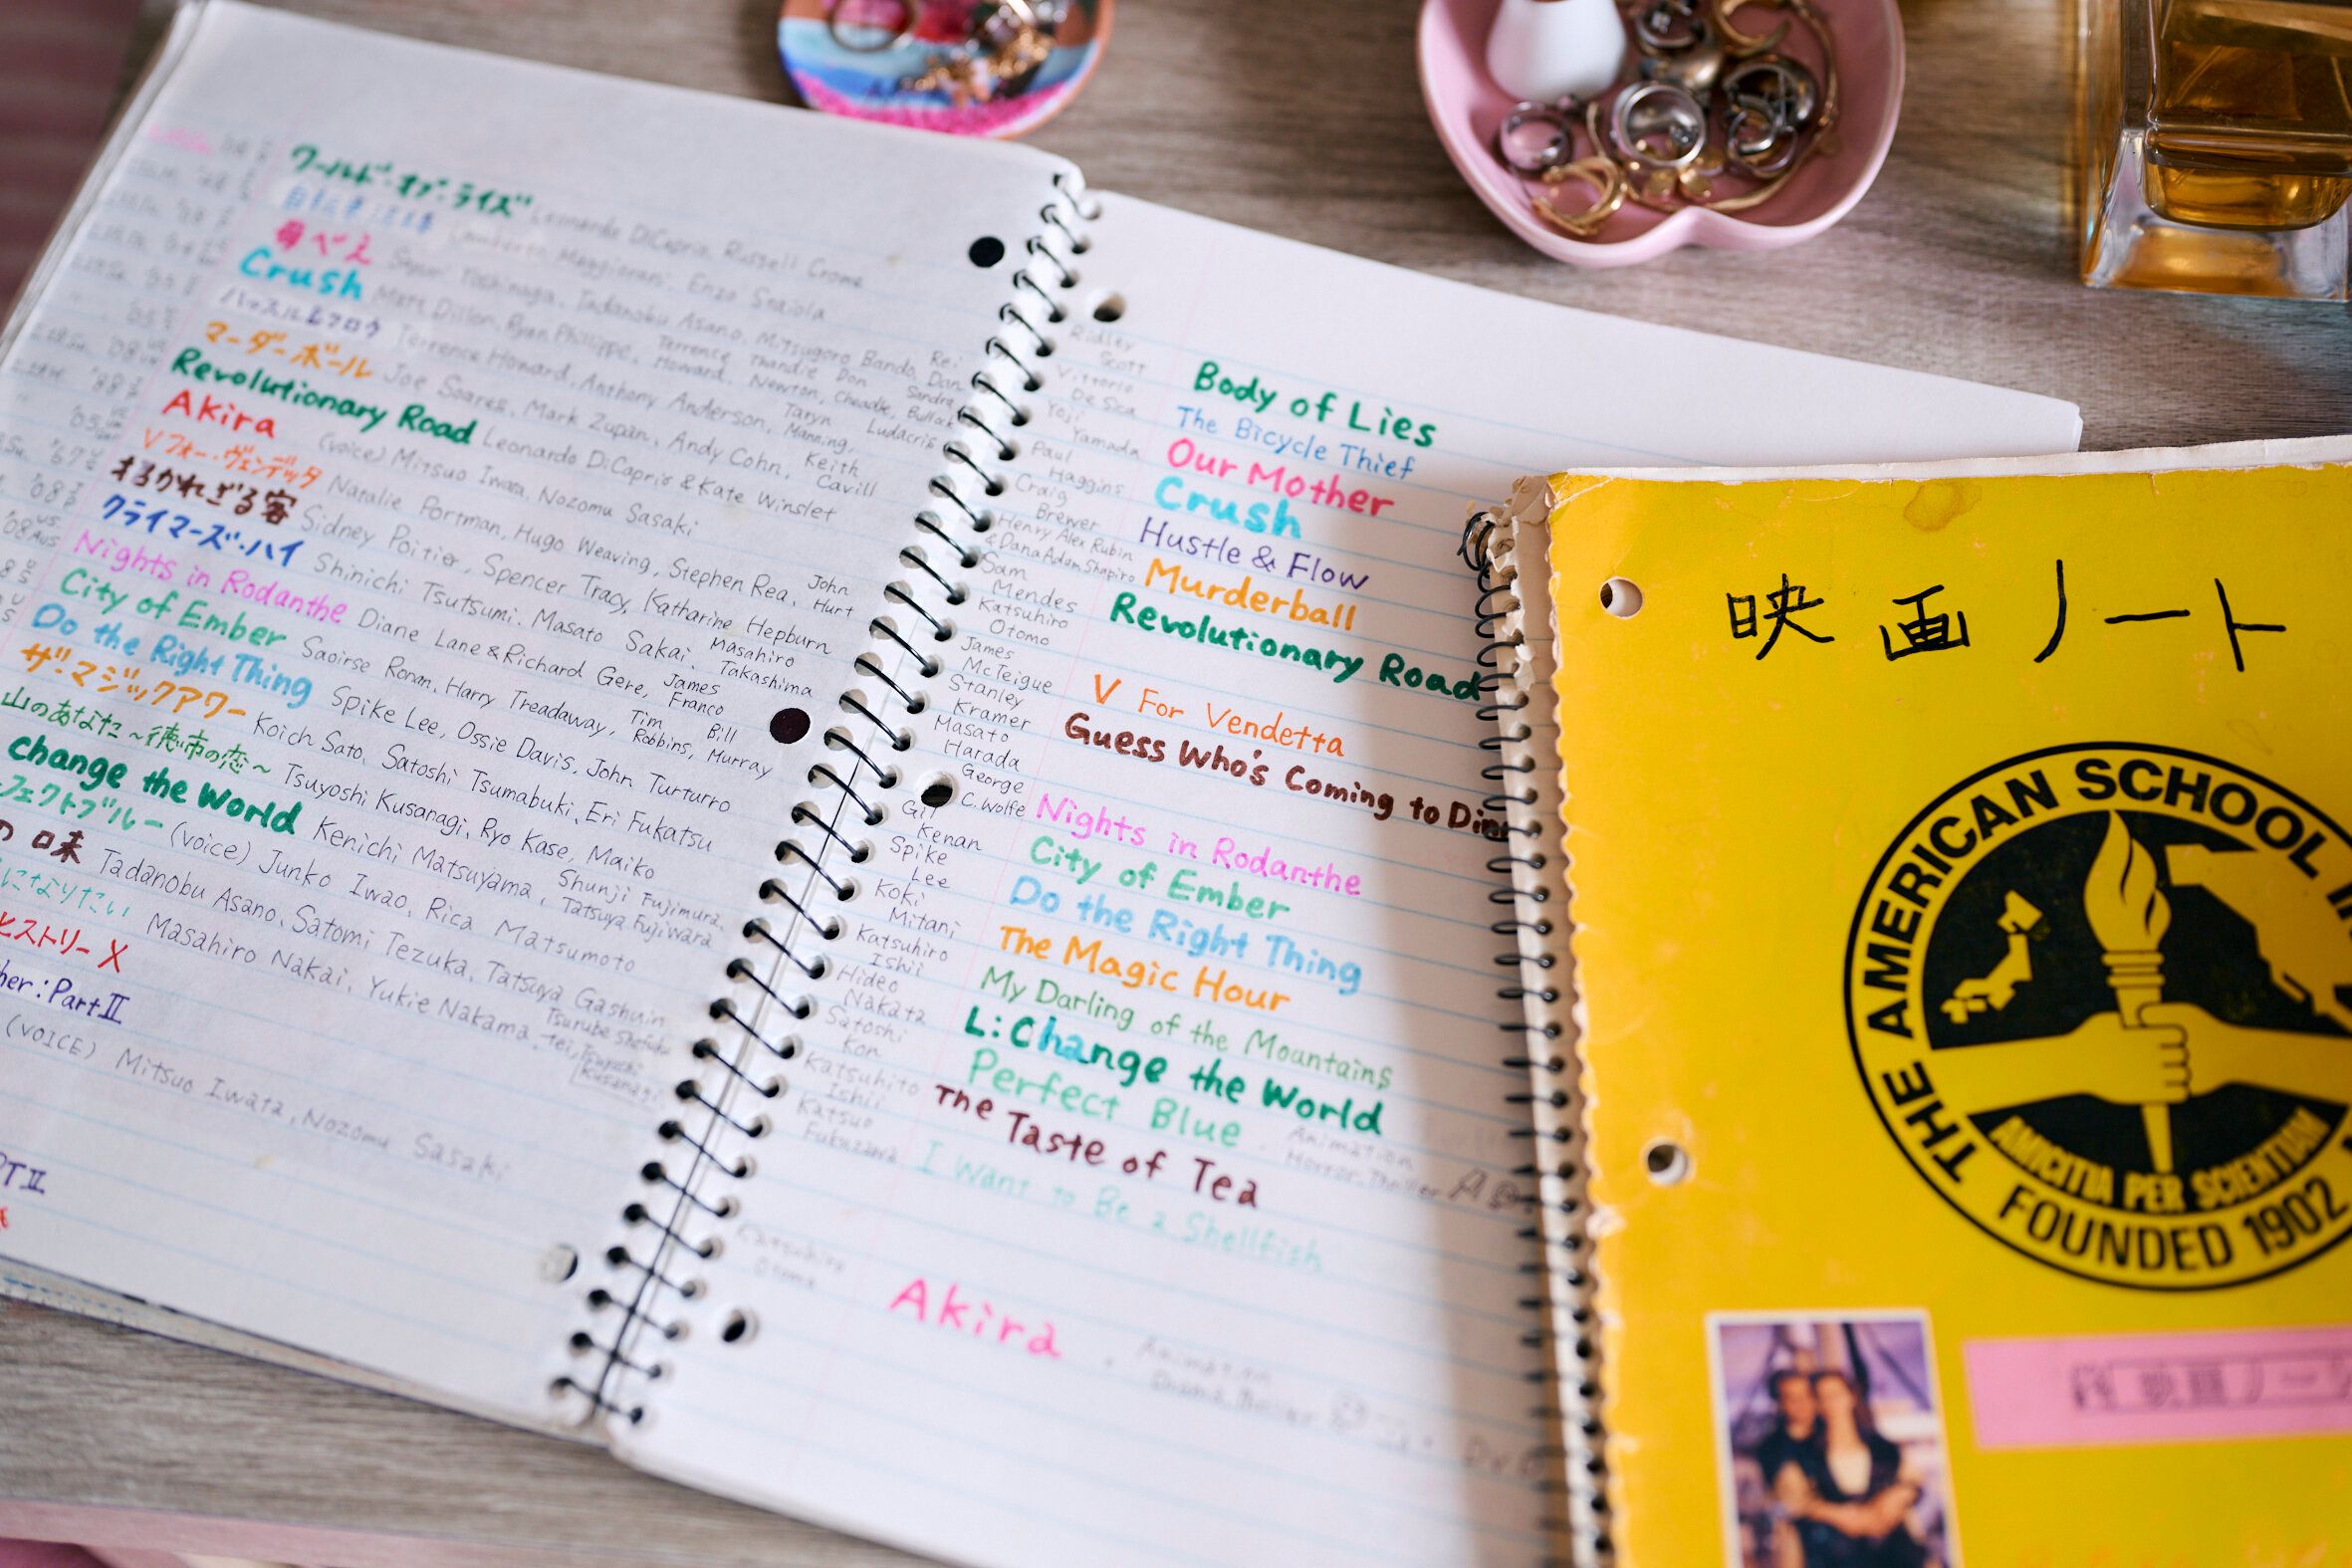 ワールド・オブ・ライズ Leonardo DiCaprio, Russell Crowe
自転車泥棒 Lamberto Maggiorani, Enzo Staiola
母べえ Sayuri Yoshinaga, Tadanobu Asano, Mitsugoro Bando
Crush Matt Dillon, Ryan Philippe, Terrence Howard, Thandie Newton, Don Cheadle, Sandra Bullock
ハッスル&フロウ Terrence Howard, Anthony Anderson, Taryn Manning, Ludacris
マーダーボール Joe Soares, Mark Zupan, Andy Cohn, Keith Cavill
Revolutionary Road Leonardo DiCaprio & Kate Winslet
Akira (voice) Mitsuo Iwata, Nozomu Sasaki
Vフォー・ヴェンデッタ Natalie Portman, Hugo Weaving, Stephen Rea, John Hurt
まねかれざる客 Sidney Poitier, Spencer Tracy, Katharine Hepburn
クライマーズ・ハイ Shinichi Tsutsumi, Masato Sakai, Masahiro Takashima
Nights in Rodanthe Diane Lane & Richard Gere, James Franco
City of Ember Saoirse Ronan, Harry Treadaway, Tim Robbins, Bill Murray
Do the Right Thing Spike Lee, Ossie Davis, John Turturro
ザ・マジックアワー Koich Sato, Satoshi Tsumabuki, Eri Fukatsu
山のあなた～徳市の恋～ Tsuyoshi Kusanagi, Ryo Kase, Maiko
change the World Kenichi Matsuyama, Shunji Fujimura, Tatsuya Fujiwara
フェクトブルー (voice) Junko Iwao, Rica Matsumoto
の味 Tadanobu Asano, Satomi Tezuka, Tatsuya Gashuin
になりたい Masahiro Nakai, Yukie Nakama, Tsuyoshi Kusanagi
ヒストリーX
her: Part II
(VOICE) Mitsuo Iwata, Nozomu Sasaki
PT II
Ridley Scott Body of Lies
Vittorio De Sica The Bicycle Thief
Yoji Yamada Our Mother
Paul Haggins Crush
Craig Brewer Hustle & Flow
Henry Alex Rubin & Dana Adam Shapiro Murderball
Sam Mendes Revolutionary Road
Katsuhiro Otomo
James McTeigue V For Vendetta
Stanley Kramer Guess Who's Coming to Din
Masato Harada
George C. Wolfe Nights in Rodanthe
Gil Kenan City of Ember
Spike Lee Do the Right Thing
Koki Mitani The Magic Hour
Katsuhiro Ishii My Darling of the Mountains
Hideo Nakata L: Change the World
Satoshi Kon Perfect Blue . Animation Horror. Thriller
Katsuhito Ishii The Taste of Tea
Katsuo Fukuzawa I Want to Be a Shellfish
Katsuhiro Otomo Akira . Animation
映画ノート
THE AMERICAN SCHOOL I
AMICITIA PER SCIENTIAM
FOUNDED 1902
映画ノート